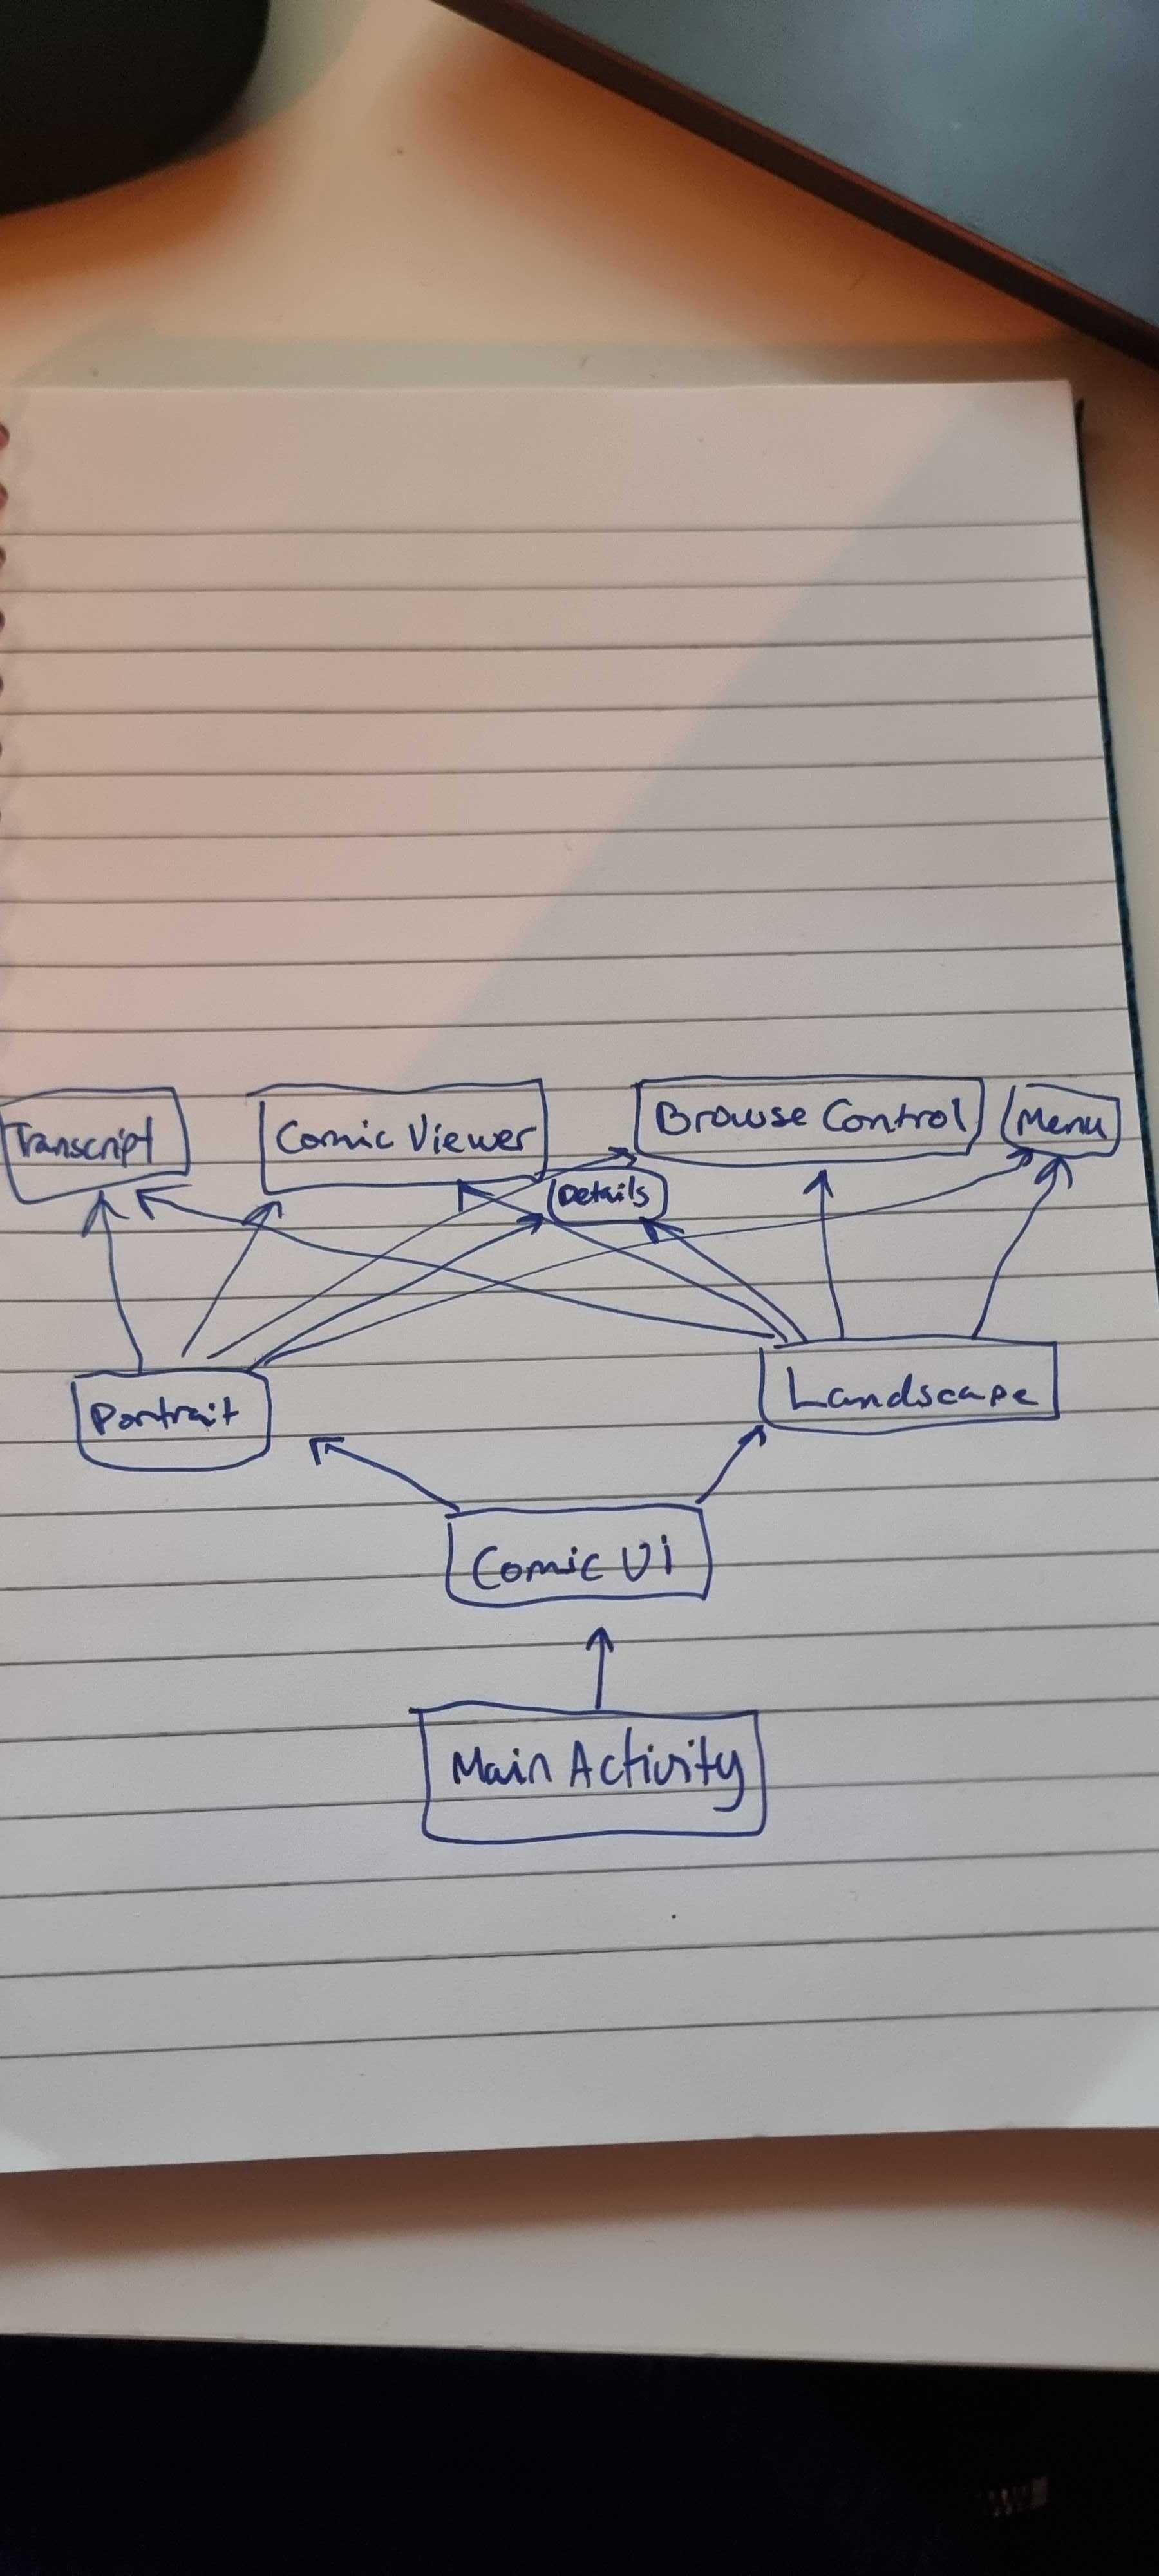 Transcript
Comic Viewer
Browse Control
Menu
Details
Portrait
Landscape
Comic Ui
Main Activity